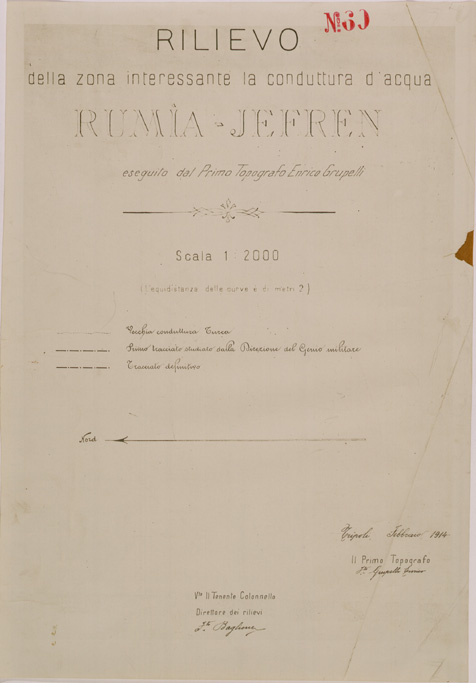 №60
RILIEVO
della zona interessante la conduttura d'acqua
RUMÎA - JEFREN
eseguito dal Primo Topografo Enrico Grupelli
Scala 1 : 2000
(l'equidistanza delle curve è di metri 2)
Vecchia conduttura Turca
Primo tracciato studiato dalla Direzione del Genio militare
Tracciato definitivo
Nord
Tripoli, Febbraio 1914
Il Primo Topografo
Fto Grupelli Enrico
Vto Il Tenente Colonnello
Direttore dei rilievi